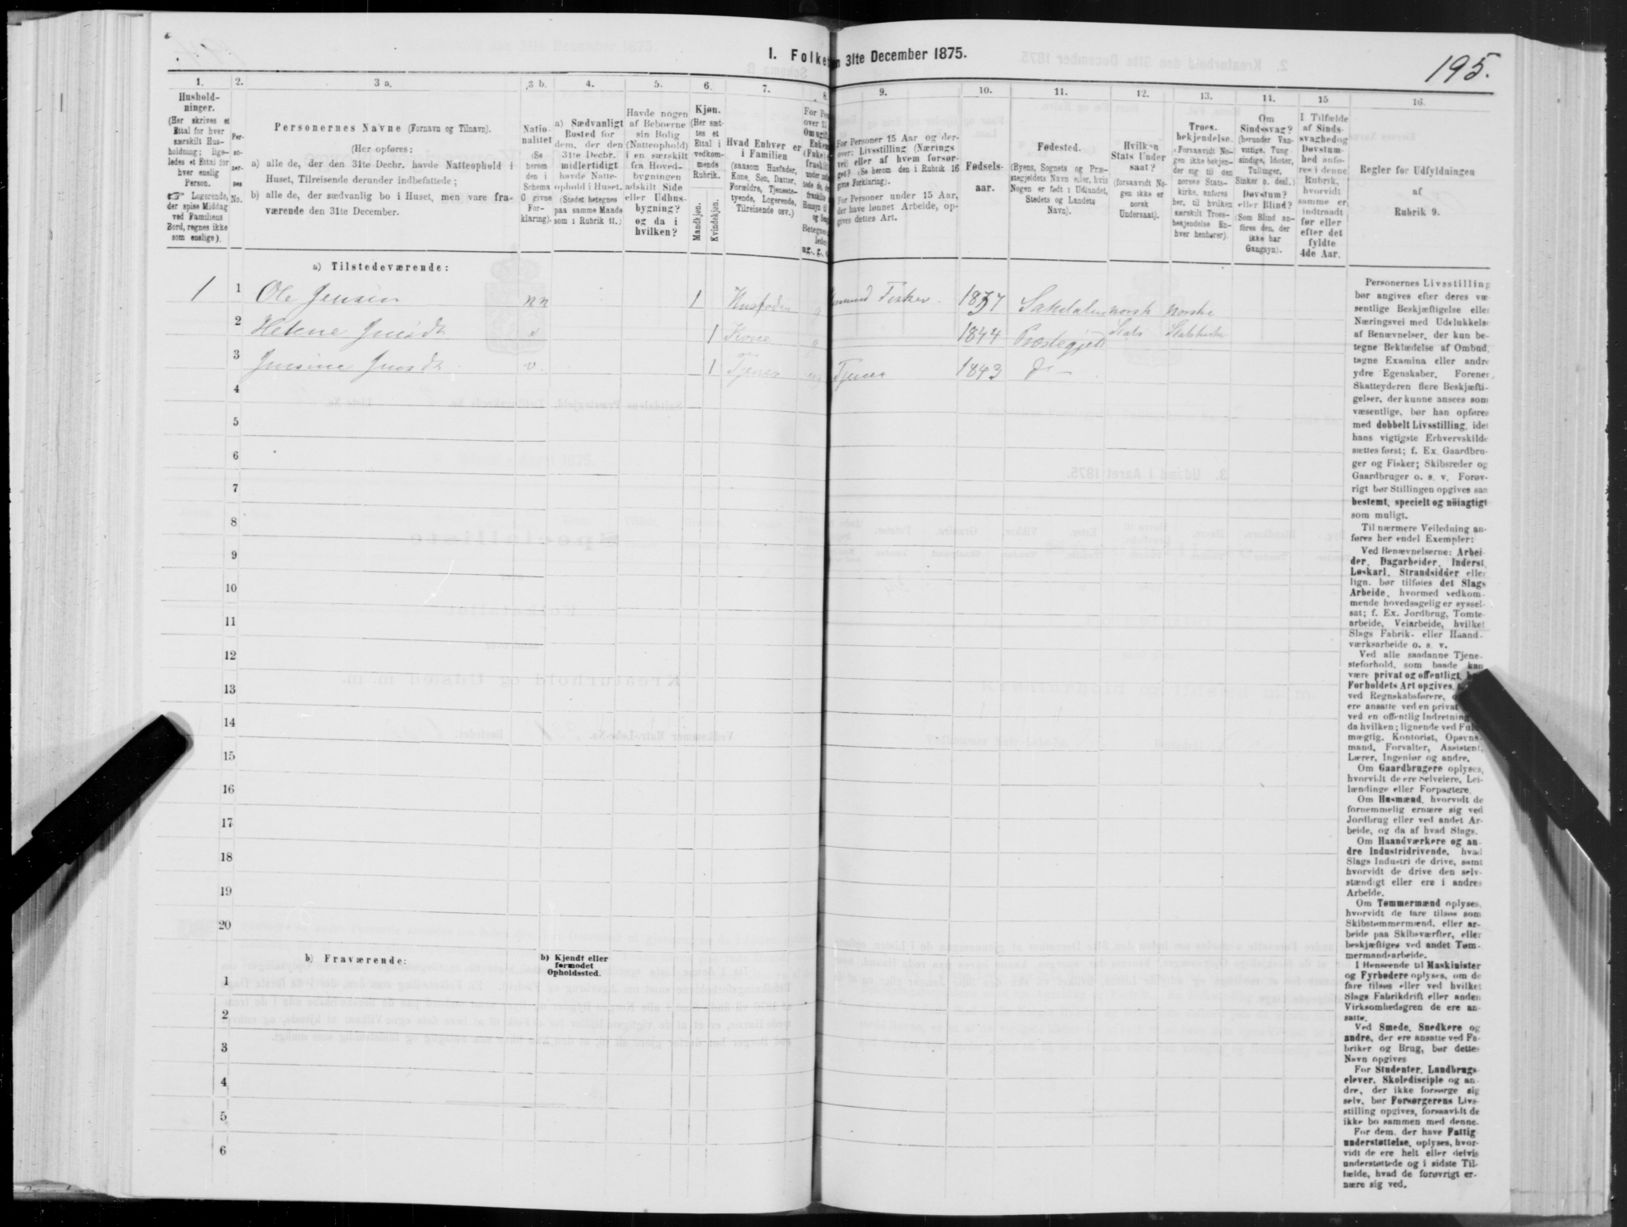 195.
I. Folke
n 31te December 1875.
1. 2. 3 a. 3 b. 4. 5. 6. 7. 8. 9. 10. 11. 12. 13. 14. 15 16.
Hushold-
ninger.
(Her skrives et
Ettal for hver
særskilt Hus-
holdning; lige-
ledes et Ettal for
hver enslig
Person.
Logerende,
der spise Middag
ved Familiens
Bord, regnes ikke
som enslige).
Per-
ser-
nes
No.
Personernes Navne (Fornavn og Tilnavn).
(Her opføres:
a) alle de, der den 31te Decbr. havde Natteophold i
Huset, Tilreisende derunder indbefattede;
b) alle de, der sædvanlig bo i Huset, men vare fra-
værende den 31te December.
Natio-
nalitet
(Se
herom
den i
Schema
G givne
For-
klaring).
a) Sædvanligt
Bosted for
dem, der den
31te Decbr.
midlertidigt
havde Natte-
ophold i Huset.
(Stedet betegnes
paa samme Maade
som i Rubrik 11.)
Havde nogen
af Beboerne
sin Bolig
(Natteophold)
i en særskilt
fra Hoved-
bygningen
adskilt Side
eller Udhus-
bygning?
og da i
hvilken?
Kjøn.
(Her sæt-
tes et
Ettal i
vedkom-
mende
Rubrik.
Mandkjøn.
Kvindekjøn.
Hvad Enhver er
i Familien
(saasom Husfader,
Kone, Søn, Datter,
Forældre, Tjeneste-
tyende, Logerende,
Tilreisende osv.)
For Personer 15 Aar og der-
over: Livsstilling (Nærings
vei) eller af hvem forsør-
get? (Se herom den i Rubrik 16
givne Forklaring).
For Personer under 15 Aar,
der have lønnet Arbeide, op-
gives dettes Art.
Fødsels-
aar.
Fødested.
(Byens, Sognets og Præ-
stegjeldets Navn eller, hvis
Nogen er født i Udlandet,
Stedets og Landets
Navn).
Hvilken
Stats Under
saat?
(forsaavidt No-
gen ikke er
norsk
Undersaat).
Troes-
bekjendelse.
(Forsaavidt No-
gen ikke bekjen-
der sig til den
norske Stats-
kirke, anføres
her, til hvilken
særskilt Troes-
bekjendelse En-
hver henhører).
Om
Sindssvag?
(herunder Van-
vittige, Tung
sindige, Idioter,
Tullinger,
Sinker o. desl.)
Døvstum?
eller Blind?
(Som Blind an-
føres den, der
ikke har
Gangsyn).
I Tilfælde
af Sinds-
svaghed og
Døvstum-
hed anfø-
res i denne
Rubrik,
hvorvidt
samme er
indtraadt
før eller
efter det
fyldte
4de Aar.
Regler for Udfyldningen
af
Rubrik 9.
a) Tilstedeværende:
1 1 Ole Jensen nn 1 Husfader Fisker. 1837 norsk norske
2 Helene 1 Kone 1844 Præstegjeld Stats Statskirke
3 Jensine 1 Tjener Tjener 1843 do
4
5
6
7
8
9
10
11
12
13
14
15
16
17
18
19
20
b) Fraværende:
b) Kjendt eller
formodet
Opholdssted.
1
2
3
4
5
6
Personernes Livsstilling
bør angives efter deres væ-
sentlige Beskjæftigelse eller
Næringsvei med Udelukkelse
af Benævnelser, der kun be-
tegne Beklædelse af Ombud,
tagne Examina eller andre
ydre Egenskaber. Forener
Skatteyderen flere Beskjæfti-
gelser, der kunne ansees som
væsentlige, bør han opføres
med dobbelt Livsstilling, idet
hans vigtigste Erhvervskilde
sættes først; f. Ex. Gaardbru-
ger og Fisker; Skibsreder og
Gaardbruger o. s. v. Forøv-
rigt bør Stillingen opgives saa
bestemt, specielt og nøiagtigt
som muligt.
Til nærmere Veiledning an-
føres her endel Exempler:
Ved Benævnelserne: Arbei-
der, Dagarbeider, Inderst,
Løskarl, Strandsidder eller
lign. bør tilføies det Slags
Arbeide, hvormed vedkom-
mende hovedsagelig er syssel-
sat; f. Ex. Jordbrug, Tomte-
arbeide, Veiarbeide, hvilket
Slags Fabrik- eller Haand-
værksarbeide o. s. v.
Ved alle saadanne Tjene-
steforhold, som baade kan
være privat og offentligt,
Forholdets Art opgives,
ved Regnskabsførere,
ere ansatte ved en privat
ved en offentlig Indretning
da hvilken; lignende ved Fuld-
mægtig, Kontorist, Opsyns-
mand, Forvalter, Assistent,
Lærer, Ingeniør og andre.
Om Gaardbrugere oplyses,
hvorvidt de ere Selveiere, Lei-
lændinge eller Forpagtere.
Om Husmænd, hvorvidt de
fornemmelig ernære sig ved
Jordbrug eller ved andet Ar-
beide, og da af hvad Slags.
Om Haandværkere og an-
dre Industridrivende, hvad
Slags Industri de drive, samt
hvorvidt de drive den selv-
stændigt eller ere i andres
Arbeide.
Om Tømmermænd oplyses,
hvorvidt de fare tilsøs som
Skibstømmermænd, eller ar-
beide paa Skibsværfter, eller
beskjæftiges ved andet Tøm-
mermandsarbeide.
I Henseende til Maskinister
og Fyrbødere oplyses, om de
fare tilsøs eller ved hvilket
Slags Fabrikdrift eller anden
Virksomhedsgren de ere an-
satte.
Ved Smede, Snedkere og
andre, der ere ansatte ved Fa-
briker og Brug, bør dettes
Navn opgives
For Studenter, Landbrugs-
elever, Skoledisciple og an-
dre, der ikke forsørge sig
selv, bør Forsørgerens Livs-
stilling opgives, forsaavidt de
ikke bo sammen med denne.
For dem, der have Fattig
understøttelse, oplyses, hvor-
vidt de ere helt eller delvis
understøttede og i sidste Til-
fælde, hvad de forøvrigt er-
nære sig ved.